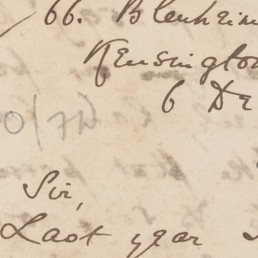 66. Blenheim
Kensington
6 De
Sir,
Last year